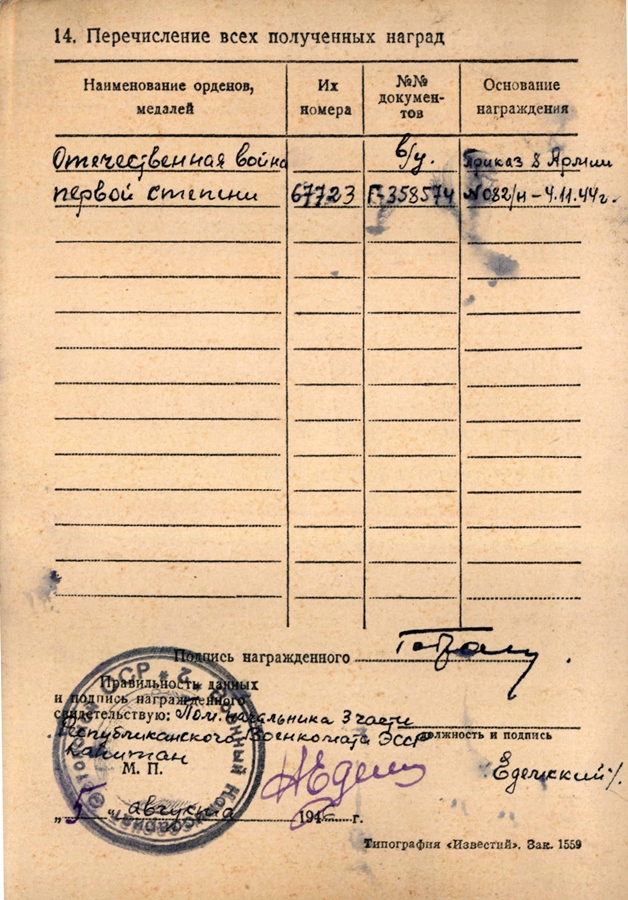 14. Перечисление всех полученных наград
Наименование орденов, медалей
Их номера
№№ докумен-тов
Основание награждения
Отечественная война в/у. Приказ 8 Армии
первой степени 67723 Г-358574 №082/н-4.11.44г.
Подпись награжденного
Правильность данных
и подпись награжденного
свидетельствую: Пом. начальника 3 части
Республиканского Военкомата ЭССР
должность и подпись
капитан
М. П.
Едецкий/.
„5" августа 194 г.
Типография «Известий». Зак. 1559